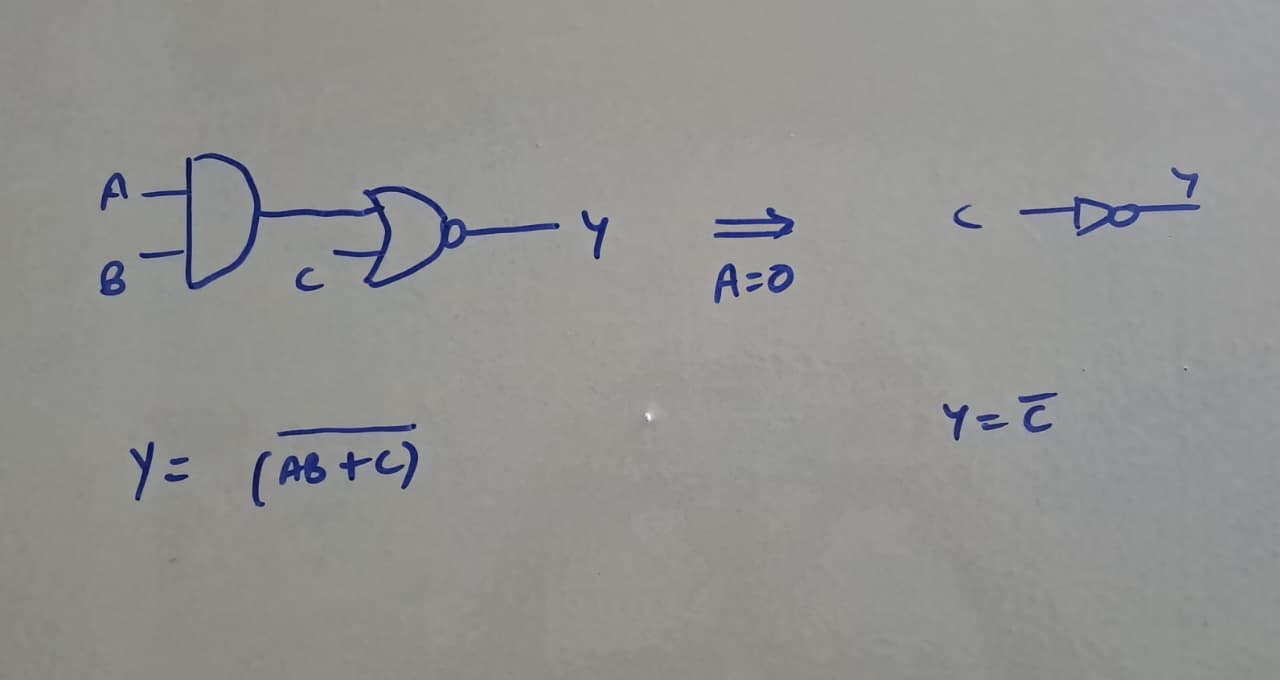 A
B
C
Y
⇒
A=0
C
Y
Y = (\overline{AB+C})
Y = C̅